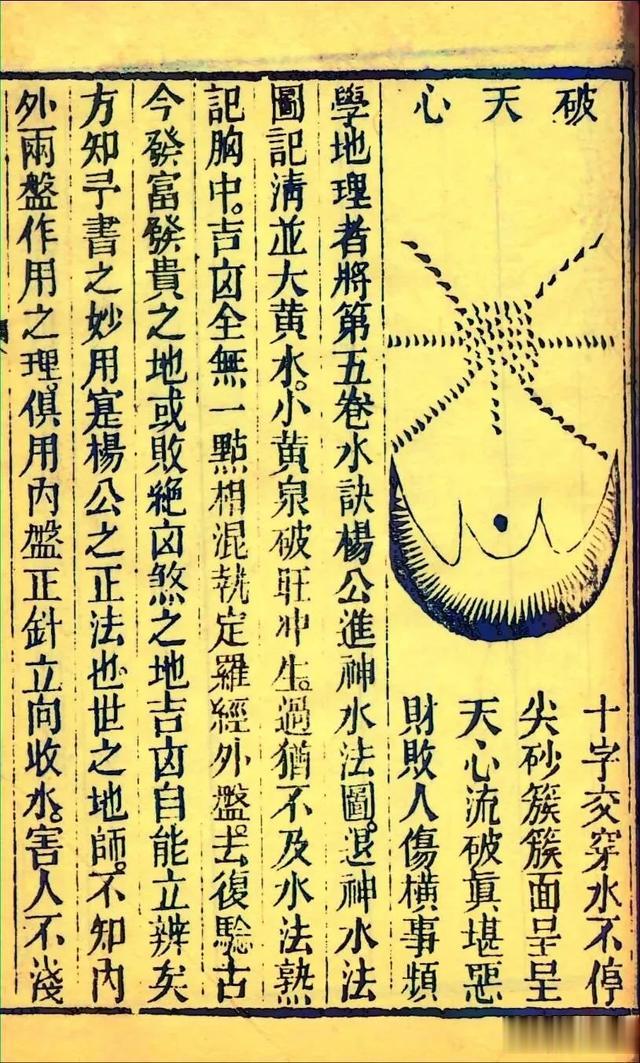 破天心
十字交穿水不停
尖砂簇簇面呈呈
天心流破眞堪惡
財敗人傷横事頻
學地理者將第五卷水訣楊公進神水法圖。退神水法
圖記淸並大黄水。小黄泉破旺冲生。過猶不及水法熟
記胸中。吉凶全無一點相混執定羅經外盤。去復騐古
今發富發貴之地或敗絶凶煞之地吉凶自能立辨矣
方知予書之妙用寔楊公之正法也世之地師。不知內
外兩盤作用之理。俱用內盤正針立向收水。害人不淺